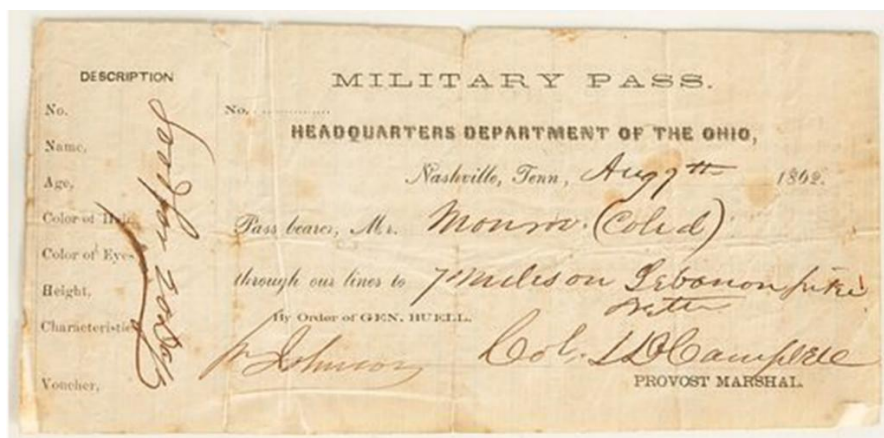 DESCRIPTION
No.
Name,
Age,
Color of Hair,
Color of Eyes
Height,
Characteristics
Voucher,
MILITARY PASS.
No.
HEADQUARTERS DEPARTMENT OF THE OHIO,
Nashville, Tenn, Aug 7th 1862.
Pass bearer, Mr. Monroe. (Cold)
through our lines to 7 miles on Lebanon pike
By Order of GEN. BUELL.
Johnson Col. L D Campbell
PROVOST MARSHAL.